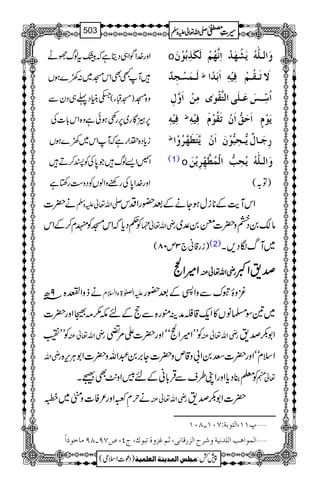 سیرتِ مصطفیٰ صلی اللہ تعالیٰ علیہ وسلم 503
وَاللّٰهُ يَشْهَدُ اِنَّهُمْ لَكٰذِبُوْنَ o اور خدا گواہی دیتا ہے کہ بیشک یہ لوگ جھوٹے
لَا تَقُمْ فِيْهِ اَبَدًا ؕ لَمَسْجِدٌ ہیں آپ کبھی بھی اس مسجد میں نہ کھڑے ہوں
اُسِّسَ عَلَى التَّقْوٰى مِنْ اَوَّلِ وہ مسجد (مسجد قباء) جسکی بنیاد پہلے ہی دن سے
يَوْمٍ اَحَقُّ اَنْ تَقُوْمَ فِيْهِ ؕ فِيْهِ پرہیز گاری پر رکھی ہوئی ہے وہ اس بات کی
رِجَالٌ يُّحِبُّوْنَ اَنْ يَّتَطَهَّرُوْا ؕ زیادہ حقدار ہے کہ آپ اس میں کھڑے ہوں
وَاللّٰهُ يُحِبُّ الْمُطَّهِّرِيْنَ o (1) اس میں ایسے لوگ ہیں جو پاکی کو پسند کرتے ہیں
(توبہ) اور خدا پاکی رکھنے والوں کو دوست رکھتا ہے
اس آیت کے نازل ہو جانے کے بعد حضور اقدس صلی اللہ تعالیٰ علیہ وسلم نے حضرت
مالک بن دخشم و حضرت معن بن عدی رضی اللہ تعالیٰ عنہما کو حکم دیا کہ اس مسجد کو منہدم کر کے اس
میں آگ لگا دیں۔ (2) (زرقانی ج۳ ص۸۰)
صدیق اکبر رضی اللہ تعالیٰ عنہ امیر الحج
غزوۂ تبوک سے واپسی کے بعد حضور علیہ الصلوٰۃ والسلام نے ذوالقعدہ ۹ھ
میں تین سو مسلمانوں کا ایک قافلہ مدینہ منورہ سے حج کے لئے مکہ مکرمہ بھیجا اور حضرت
ابوبکر صدیق رضی اللہ تعالیٰ عنہ کو ''امیر الحج'' اور حضرت علی مرتضیٰ رضی اللہ تعالیٰ عنہ کو ''نقیب
اسلام'' اور حضرت سعد بن ابی وقاص و حضرت جابر بن عبداللہ و حضرت ابوہریرہ رضی اللہ
تعالیٰ عنہم کو معلم بنا دیا اور اپنی طرف سے قربانی کے لئے بیس اونٹ بھی بھیجے۔
حضرت ابوبکر صدیق رضی اللہ تعالیٰ عنہ نے حرم کعبہ اور عرفات و منیٰ میں خطبہ
......پ۱۱،التوبة:۱۰۷۔۱۰۸
......المواهب اللدنية وشرح الزرقانی، ثم غزوة تبوك، ج٤، ص۹۷۔۹۸ ماخوذاً
پیش کش: مجلس المدينة العلمية (دعوتِ اسلامی)